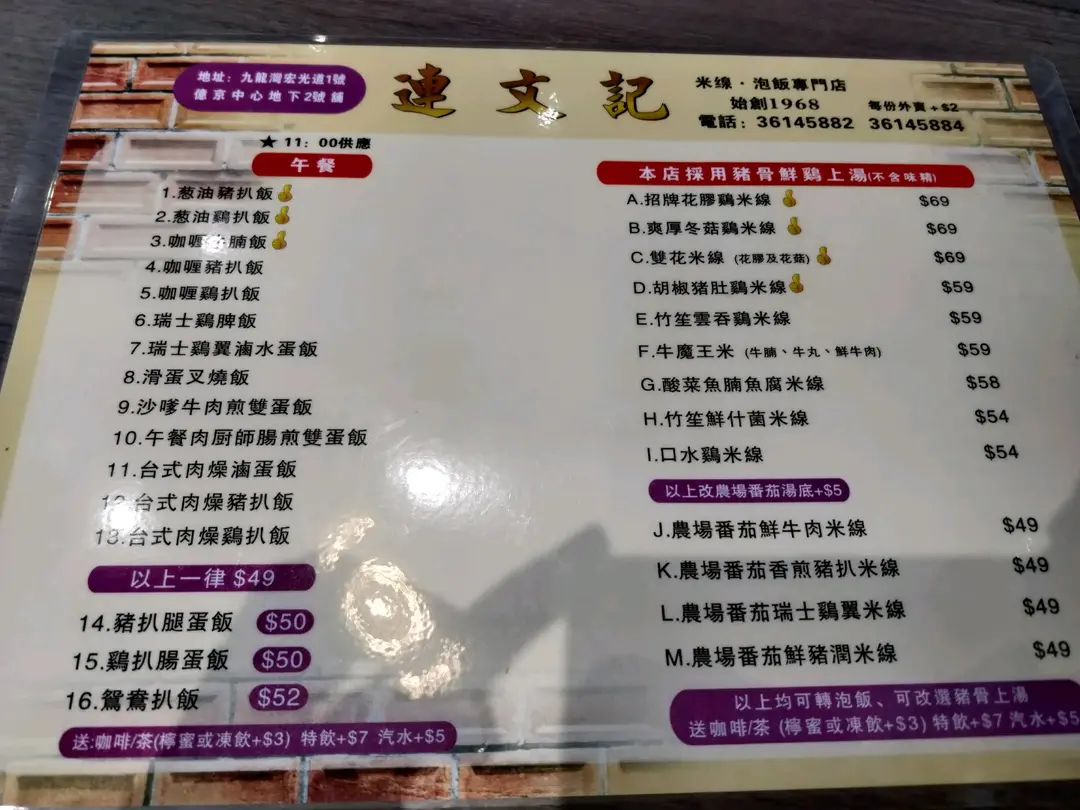 地址：九龍灣宏光道1號
億京中心地下2號舖
連文記
米線·泡飯專門店
始創1968
每份外賣+$2
電話：36145882 36145884
★ 11：00供應
午餐
1.葱油豬扒飯
2.葱油鷄扒飯
3.咖喱腩飯
4.咖喱豬扒飯
5.咖喱鷄扒飯
6.瑞士鷄脾飯
7.瑞士鷄翼滷水蛋飯
8.滑蛋叉燒飯
9.沙嗲牛肉煎雙蛋飯
10.午餐肉厨師腸煎雙蛋飯
11.台式肉燥滷蛋飯
12.台式肉燥豬扒飯
13.台式肉燥鷄扒飯
以上一律 $49
14.豬扒腿蛋飯 $50
15.鷄扒腸蛋飯 $50
16.鴛鴦扒飯 $52
送:咖啡/茶(檸蜜或凍飲+$3) 特飲+$7 汽水+$5
本店採用豬骨鮮鷄上湯(不含味精)
A.招牌花膠鷄米線 $69
B.爽厚冬菇鷄米線 $69
C.雙花米線 (花膠及花菇) $69
D.胡椒猪肚鷄米線 $59
E.竹笙雲吞鷄米線 $59
F.牛魔王米 (牛腩、牛丸、鮮牛肉) $59
G.酸菜魚腩魚腐米線 $58
H.竹笙鮮什菌米線 $54
I.口水鷄米線 $54
以上改農場番茄湯底+$5
J.農場番茄鮮牛肉米線 $49
K.農場番茄香煎豬扒米線 $49
L.農場番茄瑞士鷄翼米線 $49
M.農場番茄鮮豬潤米線 $49
以上均可轉泡飯、可改選豬骨上湯
送咖啡/茶 (檸蜜或凍飲+$3) 特飲+$7 汽水+$5